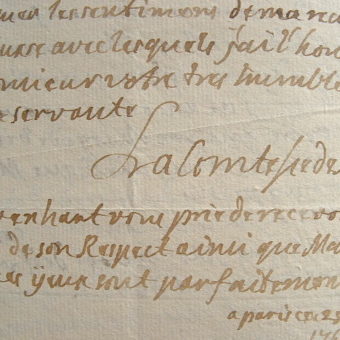 les sentimens de ma rec
avec lesquels j'ai l'hon
votre tres humble
servante
La Comtesse de
vous prie de recevo
de son Respect ainsi que Ma
sont parfaitemen
a paris ce 25
176